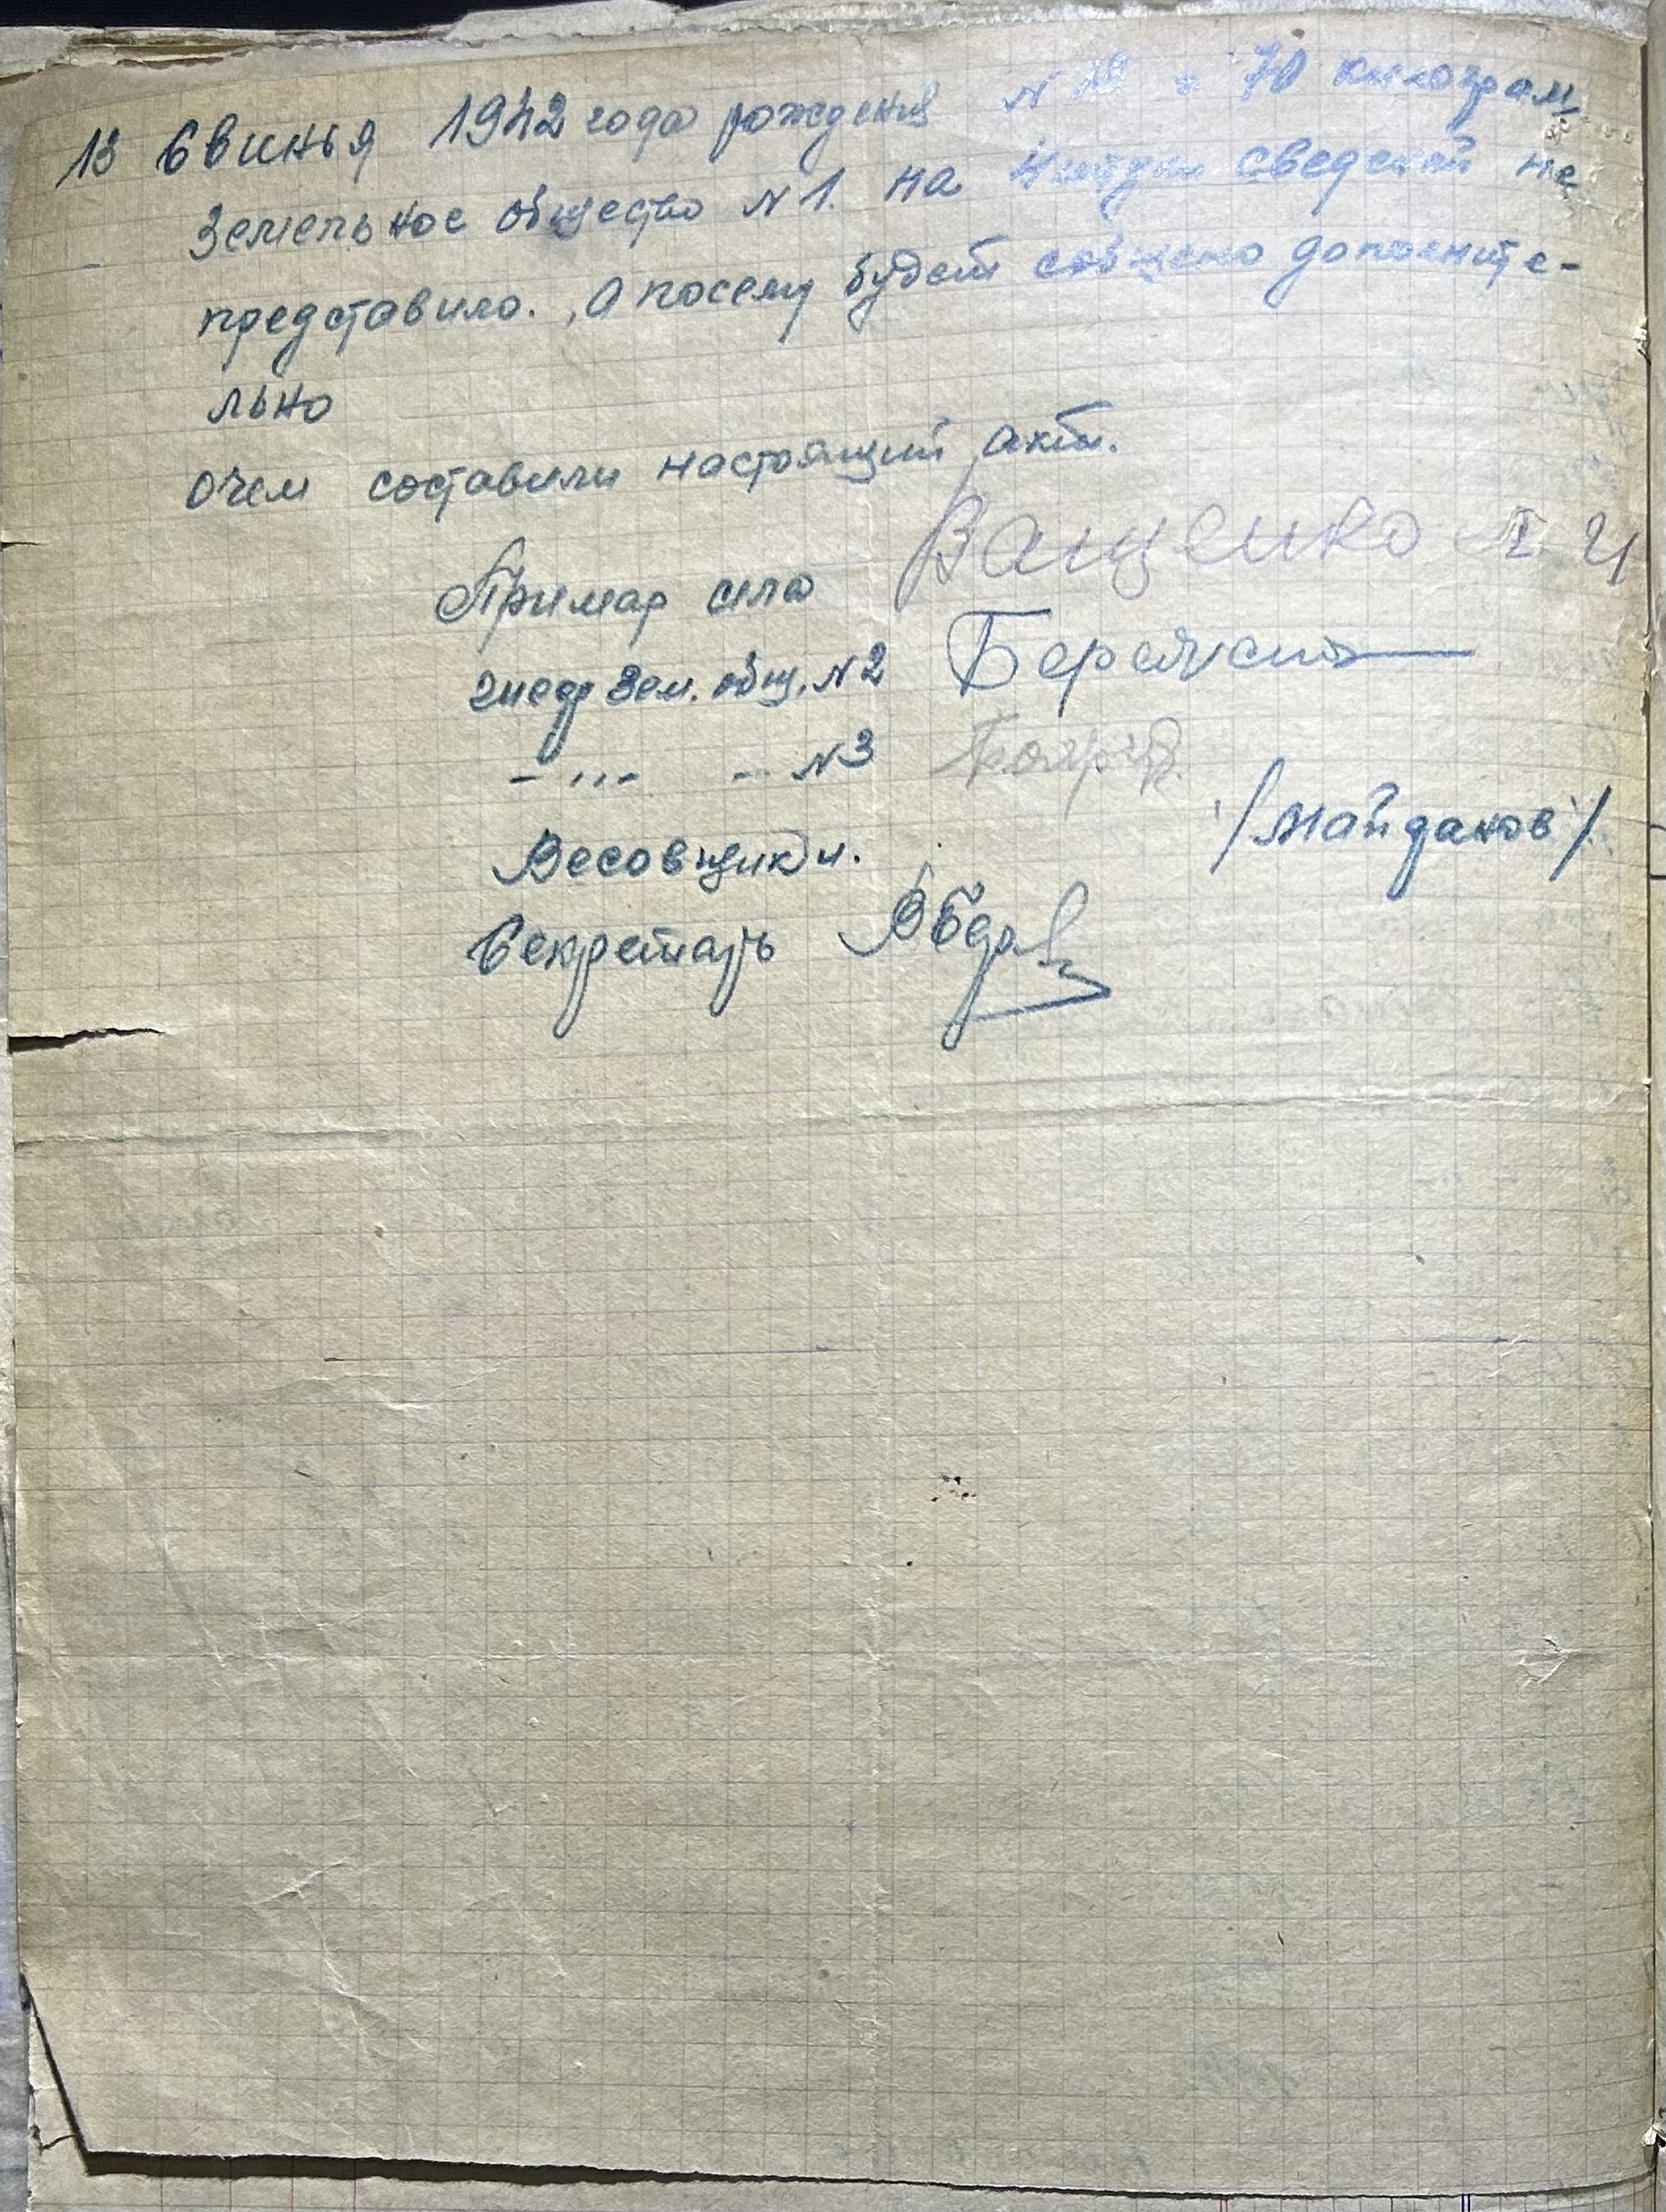 13 Свинья 1942 года рождения N 12 - 70 килограм
Земельное общество N 1. на сведений не
представило. , А посему будет дополните-
льно
Очем составили настоящий акт.
Примар села Ващенко
Зем. общ. N2
- ,,, - -- N3
Весовщики. /Майданов/
Секретарь